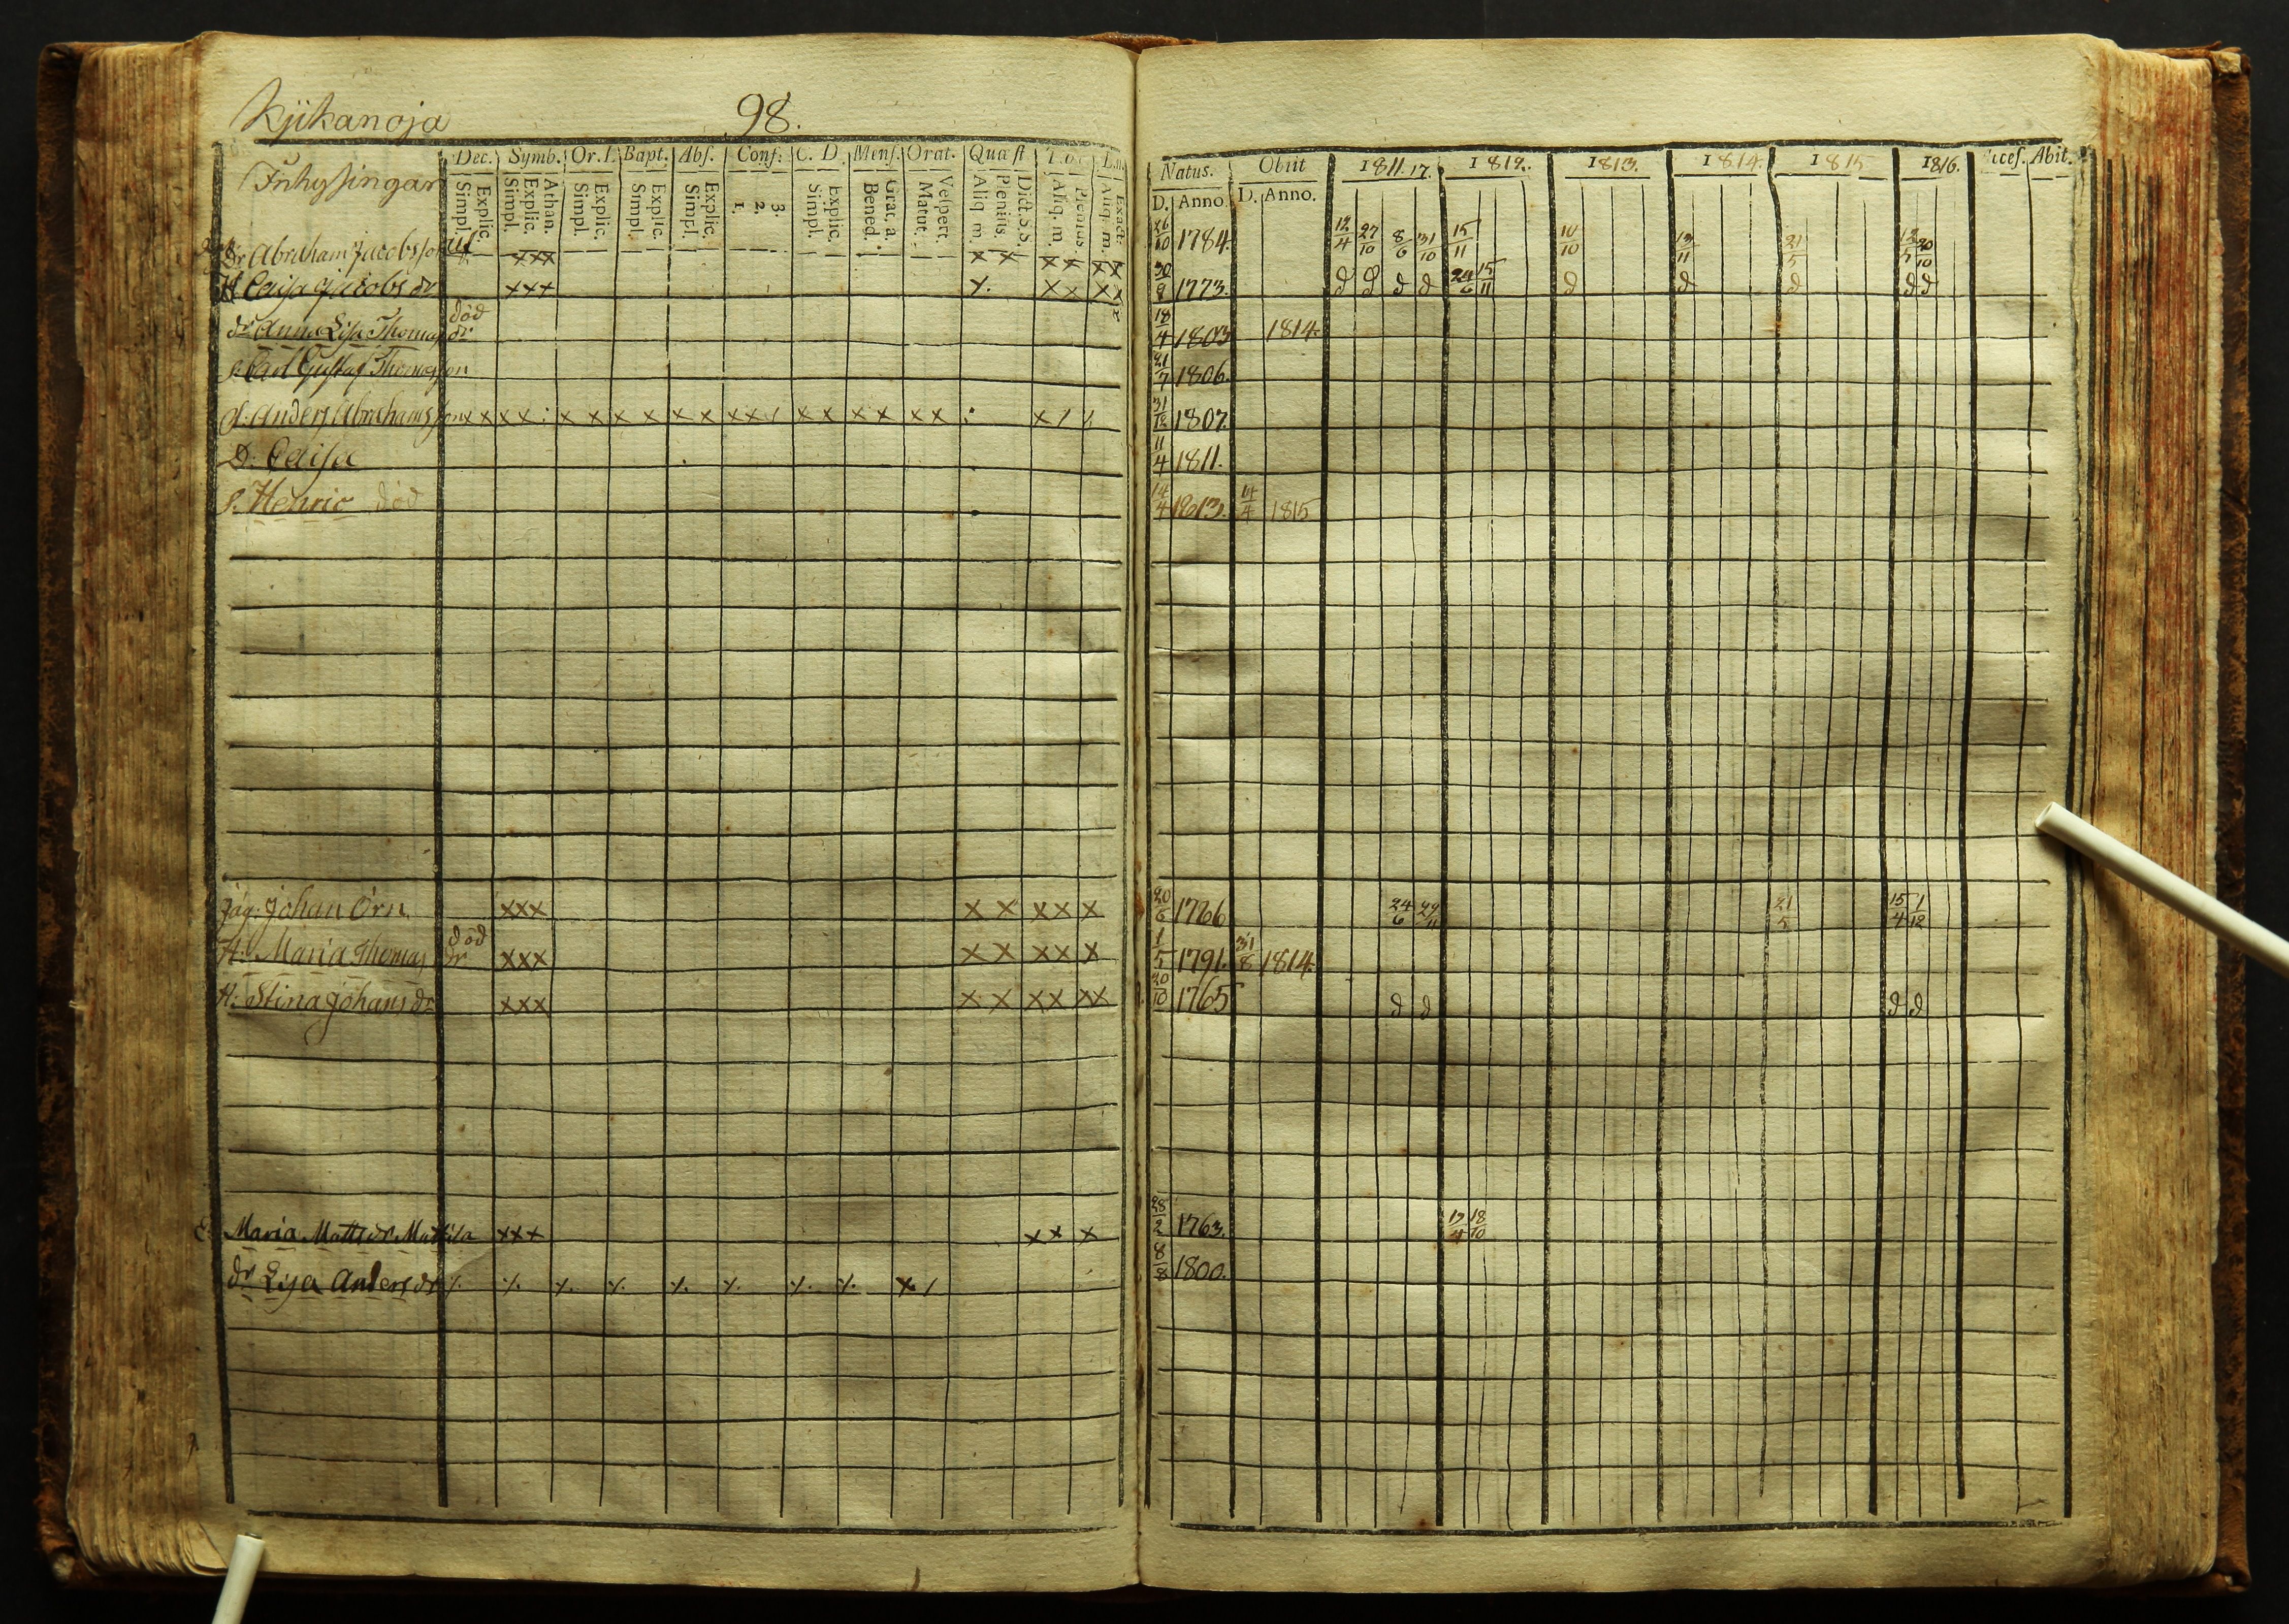 Kjikanoja 98.
Inhysingar
Dec. Symb. Or. D. Bapt. Abs. Conf: C. D. Mens. Orat. Quæst
Simpl. Explic. Simpl. Explic. Athan. Simpl. Explic. Simpl. Explic. Simpl. Explic. 1. 2. 3. Simpl. Explic. Bened. Grat. a. Matut. Vespert. Aliq. m. Plenius. Dict. S.S. Aliq. m. Plenius. Aliq. m. Exacte.
Natus. Obiit 1811. 17. 1812. 1813. 1814. 1815 1816. Acces. Abit.
D. Anno. D. Anno.
Dr Abraham Jacobsson xxx x x x x x x 26/10 1784. 12/4 27/10 8/6 31/10 15/11 10/10 13/11 21/5 20/10
H Caisa Jacobs dr xxx x. x x x x 30/8 1773. d d d d 24/6 15/11 d d d d d
dr Anna Lisa Thomas dr död 18/4 1803 1814.
s. Carl Gustaf Thomasson 21/7 1806.
s. Anders Abrahamsson x x x x : x x x x x x x x / x x x x x x : x / / 31/12 1807.
D. Caisa 11/4 1811.
s. Henric död 14/4 1813. 14/4 1815
Jäg. Johan Örn xxx x x x x x 20/6 1766 24/6 29/11 21/5 15/4 1/12
H. Maria Thomas dr död xxx x x x x x 1/5 1791. 31/8 1814.
H. Stina Johans dr xxx x x x x x x 20/10 1765 d d d d
E. Maria Matts dr Mattila xxx x x x 28/2 1763. 12/4 18/10
dr Lisa Anders dr 8/8 1800.